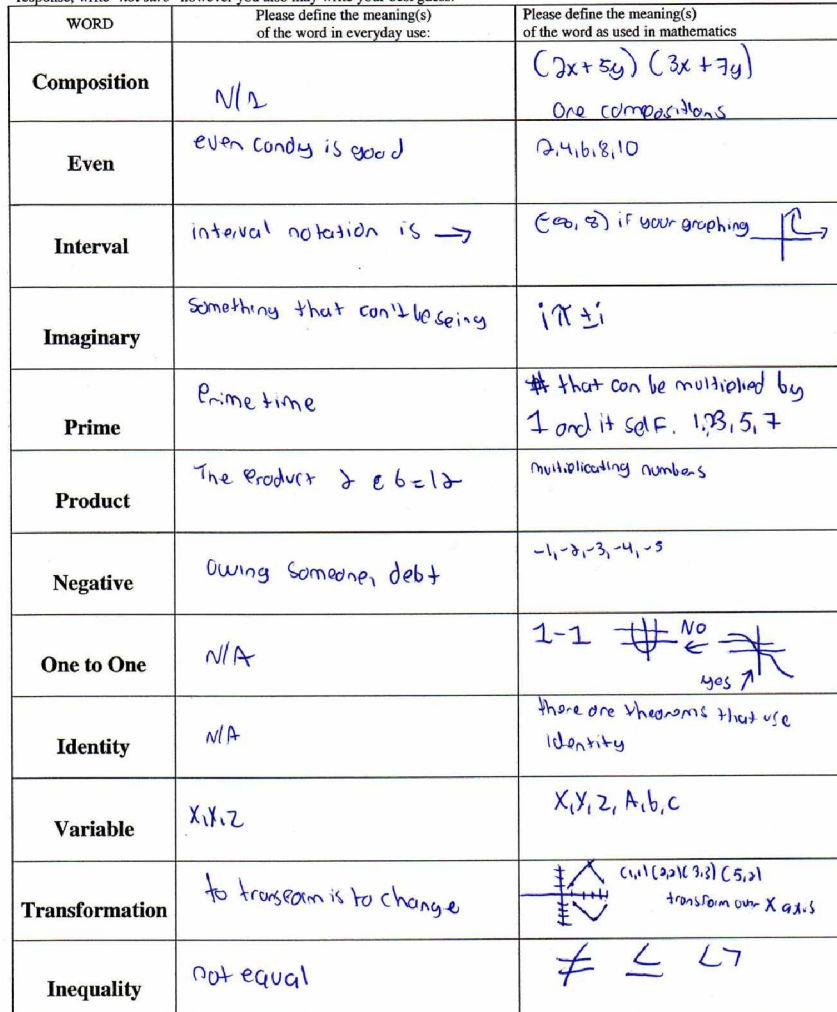 response, write "not sure" however you also may write your best guess.
WORD
Please define the meaning(s)
of the word in everyday use:
Please define the meaning(s)
of the word as used in mathematics
Composition
N/A
(2x+5y) (3x+7y)
One compositions
Even
even candy is good
2,4,6,8,10
Interval
interval notation is →
(-∞, 8) if your graphing
Imaginary
Something that can't be seing
i π ±i
Prime
Prime time
# that can be multiplied by
1 and it self. 1,2,3,5,7
Product
The Product 2 • 6 = 12
multiplicating numbers
Negative
Owing someone, debt
-1,-2,-3,-4,-5
One to One
N/A
1-1
NO
yes
Identity
N/A
there are theorems that use
identity
Variable
X,Y,Z
X,Y,Z, A,b,c
Transformation
to transform is to change
(1,1)(2,2)(3,3)(5,2)
transform over X axis
Inequality
not equal
≠ ≤ < >